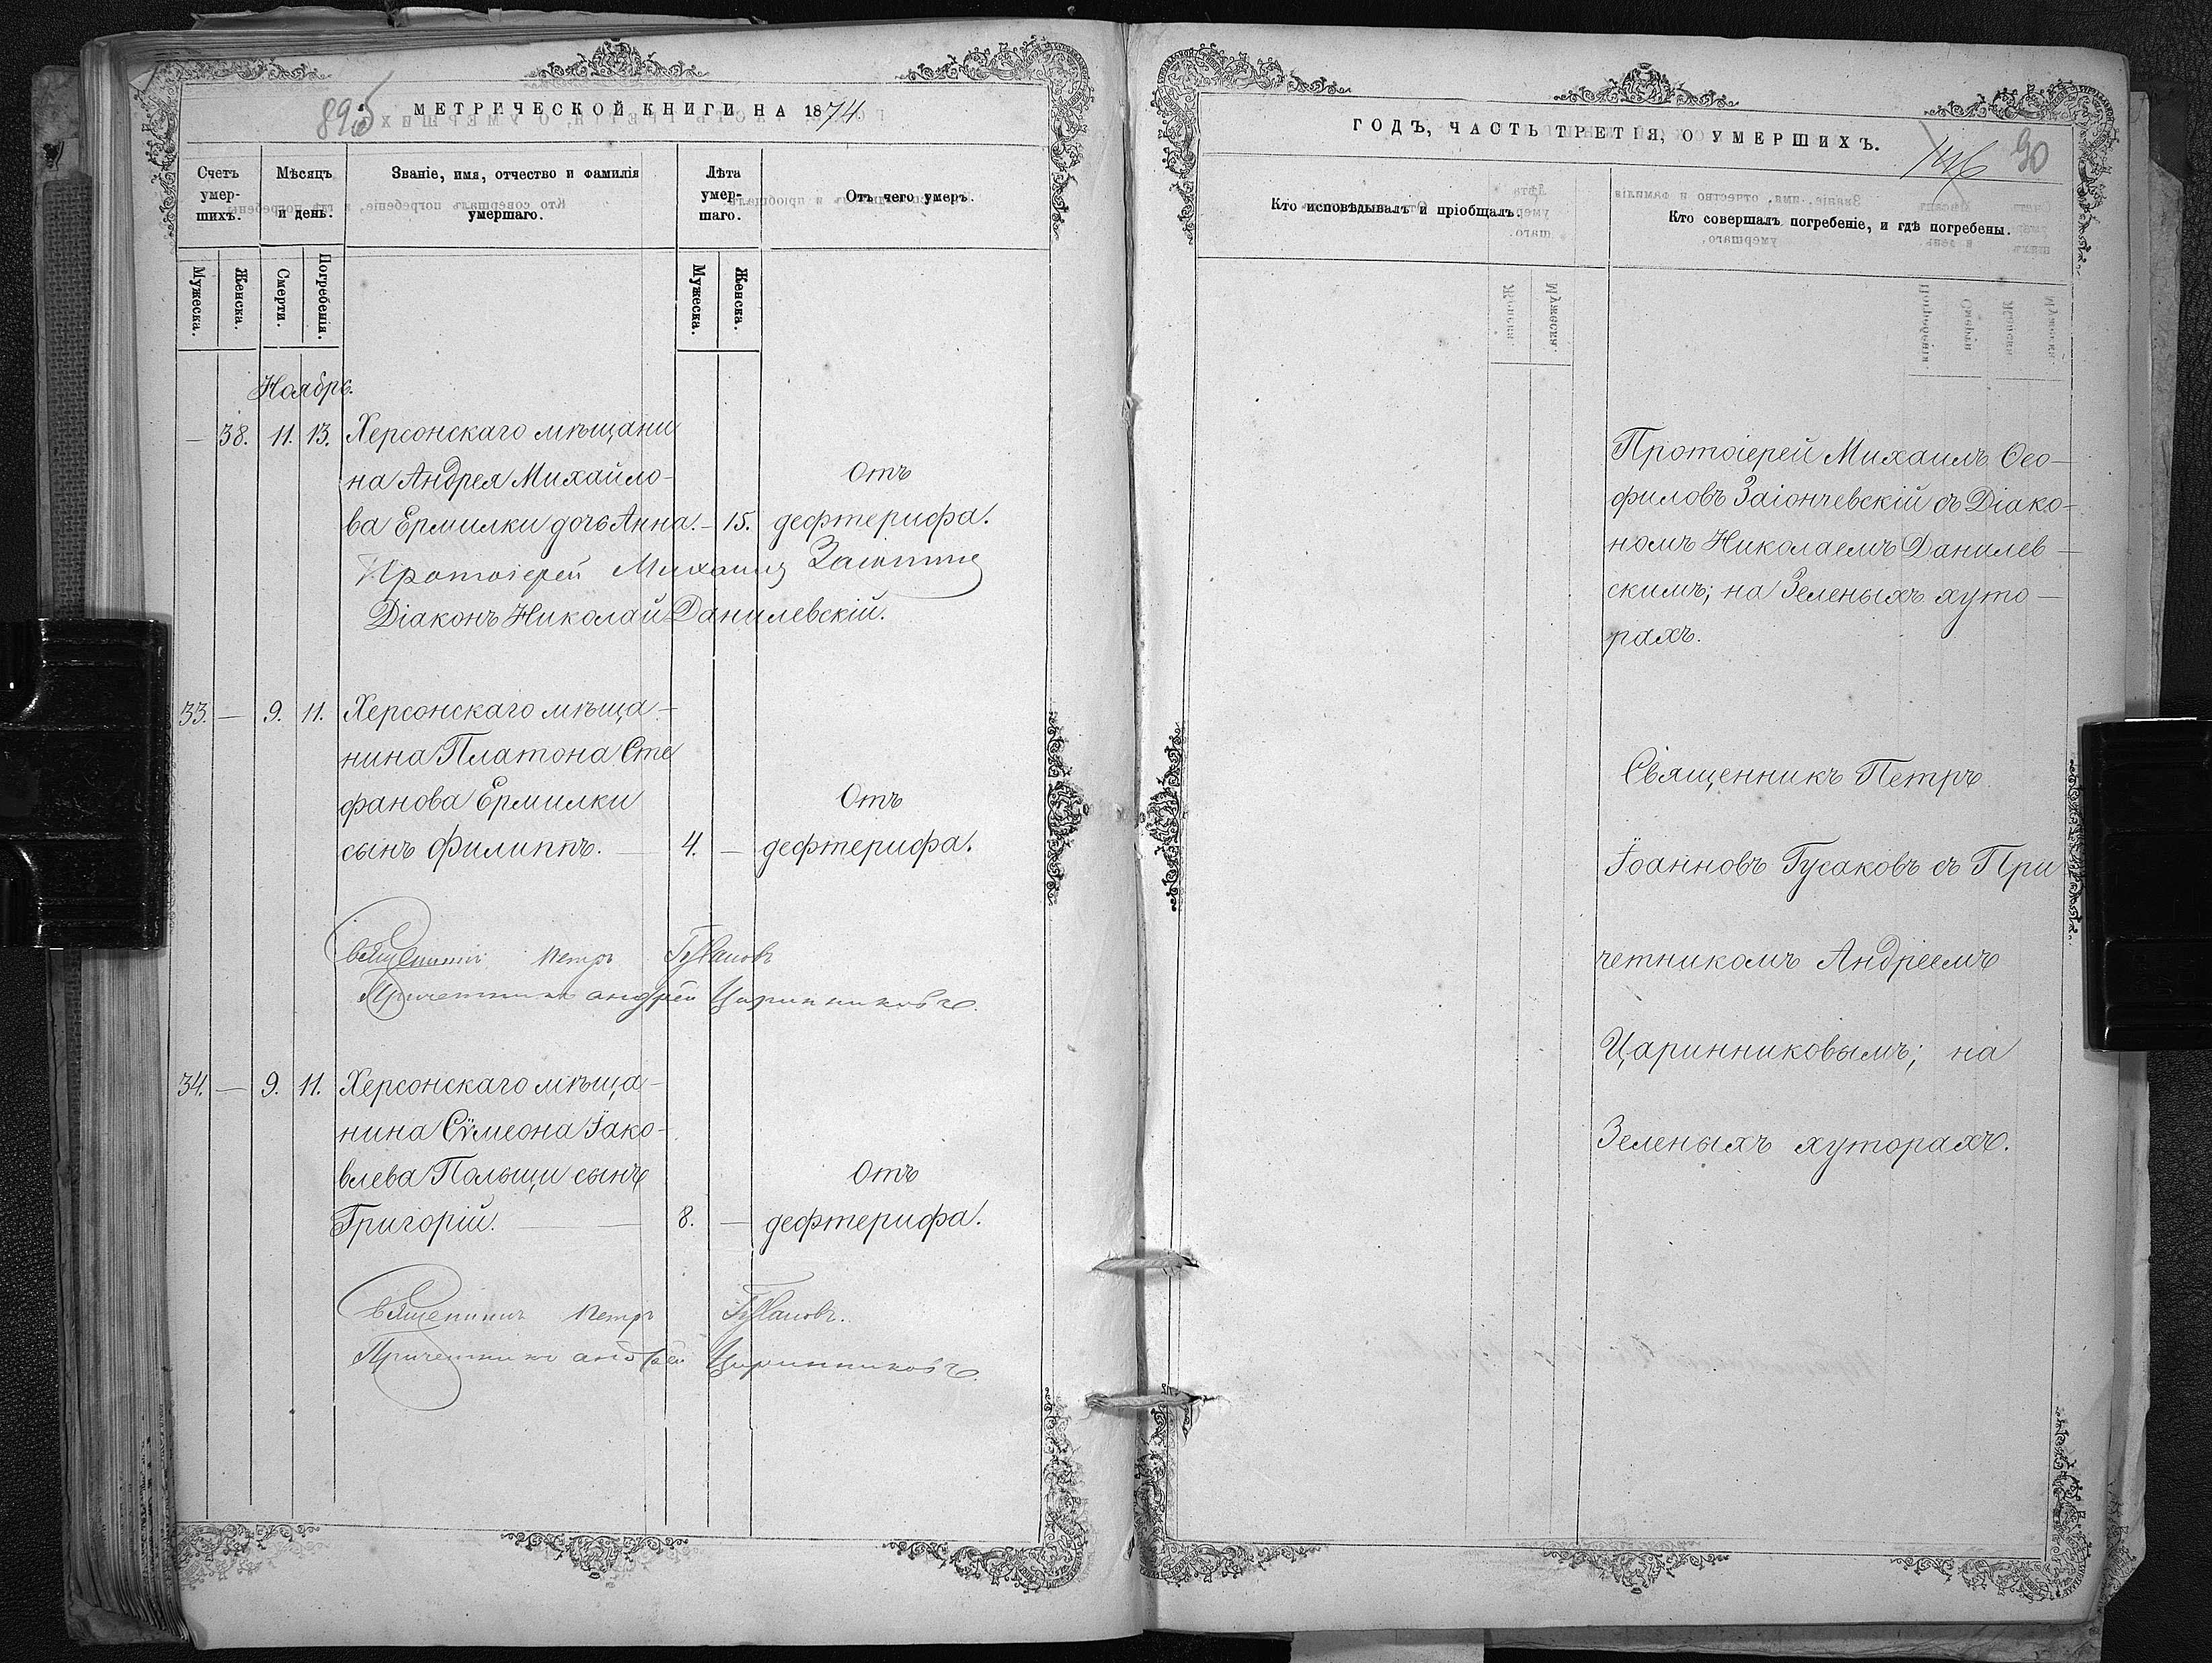 895
МЕТРИЧЕСКОЙ КНИГИ НА 1874
Счетъ умер-шихъ.
Мѣсяцъ и день.
Званіе, имя, отчество и фамилія умершаго.
Лѣта умер-шаго.
Отъ чего умеръ.
Мужеска.
Женска.
Смерти.
Погребенія.
Мужеска.
Женска.
Ноябрь.
— 38. 11. 13. Херсонскаго мѣщани
на Андрея Михайло- Отъ
ва Ермилки дочь Анна. — 15. дефтерифа.
Протоіерей Михаилъ
Діаконъ Николай Данилевскій.
33. — 9. 11. Херсонскаго мѣща-
нина Платона Сте
фанова Ермилки Отъ
сынъ Филиппъ. — 4. — дефтерифа.
Священникъ Петръ Гусаковъ
Причетникъ Андрей Царинниковъ.
34. — 9. 11. Херсонскаго мѣща-
нина Сѵмеона Іако-
влева Польщи сынъ Отъ
Григорій. — — 8. — дефтерифа.
Священникъ Петръ Гусаковъ.
Причетникъ Андрей Царинниковъ.
ГОДЪ, ЧАСТЬ ТРЕТІЯ, О УМЕРШИХЪ.
146 90
Кто исповѣдывалъ и пріобщалъ.
Кто совершалъ погребеніе, и гдѣ погребены.
Протоіерей Михаилъ Ѳео-
филовъ Заіончевскій съ Діако-
номъ Николаемъ Данилев-
скимъ; на Зеленыхъ хуто-
рахъ.
Священникъ Петръ
Іоанновъ Гусаковъ съ При
четникомъ Андреемъ
Царинниковымъ; на
Зеленыхъ хуторахъ.